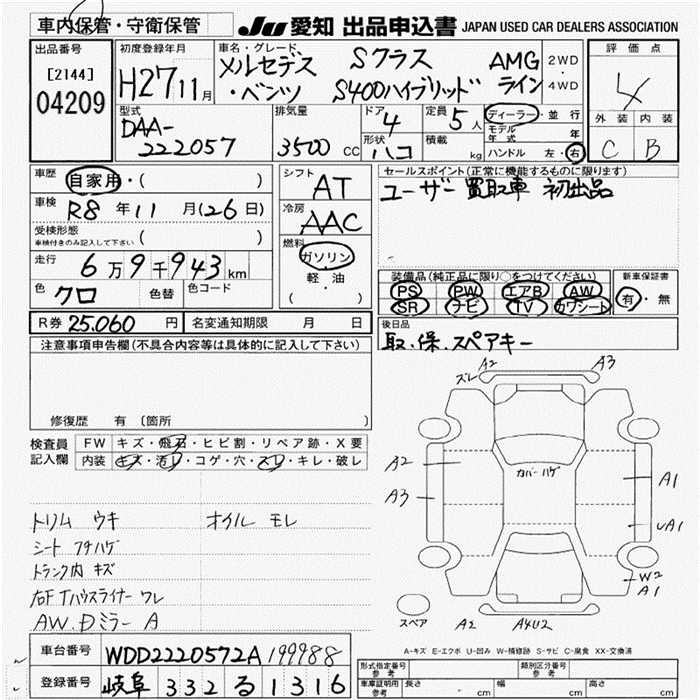 車内保管・守衛保管 JU 愛知 出品申込書 JAPAN USED CAR DEALERS ASSOCIATION
出品番号 [2144] 04209
初度登録年月 H27 11月
車名・グレード メルセデス・ベンツ Sクラス S400ハイブリッド AMGライン
2WD・4WD
評価点 4
外装 C 内装 B
型式 DAA-222057
排気量 3500 CC
ドア 4 形状 ハコ
定員 5人 積載 kg
ディーラー・並行
モデル年式 年
ハンドル 左・右
車歴 自家用・( )
車検 R8年11月(26日)
受検形態 ( )
車検付きのみ記入して下さい
走行 6万9千943km
色 クロ 色替 色コード
シフト AT
冷房 AAC
燃料 ガソリン
軽・油
( )
R券 25.060円 名変通知期限 月 日
セールスポイント(正常に機能するものに限ります)
ユーザー買取車 初出品
装備品(純正品に限り○をつけてください)
PS PW エアB AW
SR ナビ TV カワシート
新車保証書 有・無
後日品
取.保.スペアキー
注意事項申告欄(不具合内容等は具体的に記入して下さい)
修復歴 有 〔箇所
検査員記入欄 FW キズ・飛石・ヒビ割・リペア跡・X要
内装 キズ・汚レ・コゲ・穴・スレ・キレ・破レ
トリム ウキ オイル モレ
シート フチハゲ
トランク内 キズ
右FTハウスライナー ワレ
AW.Dミラー A
ズレ A2 A3
A2 カバーハゲ A1
A3 UA1
W2
A1
スペア A2 A4U2
A-キズ E-エクボ U-凹み W-補修跡 S-サビ C-腐食 XX-交換済
車台番号 WDD2220572A199988
登録番号 岐阜 332 る 1316
形式指定番号 参考 類別区分番号 参考
車庫証明用 参考 長さ cm 幅 cm 高さ cm